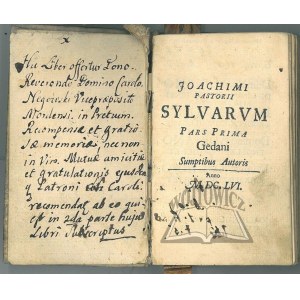 Hic Liber offertur Dono
Reverendo Domino Carolo
Negreski Vicepræposito
in Pretium
Recompensæ et Gratio
sæ memoriæ, nec non
in Vim Mutuæ amicitiæ
et gratulationis ejusdem
Patroni
recomendat ab eo qui
est in 2da parte hujus
Libri Subscriptus
JOACHIMI
PASTORII
SYLVARVM
PARS PRIMA
Gedani
Sumptibus Autoris
Anno
M.DC.LVI.